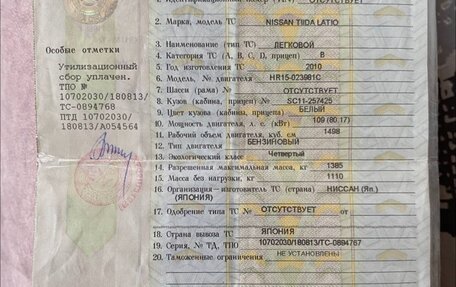 1. Идентификационный номер (VIN) ОТСУТСТВУЕТ
2. Марка, модель ТС NISSAN TIIDA LATIO
Особые отметки
Утилизационный
сбор уплачен.
ТПО №
10702030/180813/
ТС-0894768
ПТД 10702030/
180813/А054564
3. Наименование (тип ТС) ЛЕГКОВОЙ
4. Категория ТС (А, В, С, D, прицеп) В
5. Год изготовления ТС 2010
6. Модель, № двигателя HR15-023981C
7. Шасси (рама) № ОТСУТСТВУЕТ
8. Кузов (кабина, прицеп) № SC11-257425
9. Цвет кузова (кабины, прицепа) БЕЛЫЙ
10. Мощность двигателя, л. с. (кВт) 109 (80.17)
11. Рабочий объем двигателя, куб. см 1498
12. Тип двигателя БЕНЗИНОВЫЙ
13. Экологический класс Четвертый
14. Разрешенная максимальная масса, кг 1385
15. Масса без нагрузки, кг 1110
16. Организация-изготовитель ТС (страна) НИССАН (Яп.)
(ЯПОНИЯ)
17. Одобрение типа ТС № ОТСУТСТВУЕТ от
18. Страна вывоза ТС ЯПОНИЯ
19. Серия, № ТД, ТПО 10702030/180813/ТС-0894767
20. Таможенные ограничения НЕ УСТАНОВЛЕНЫ